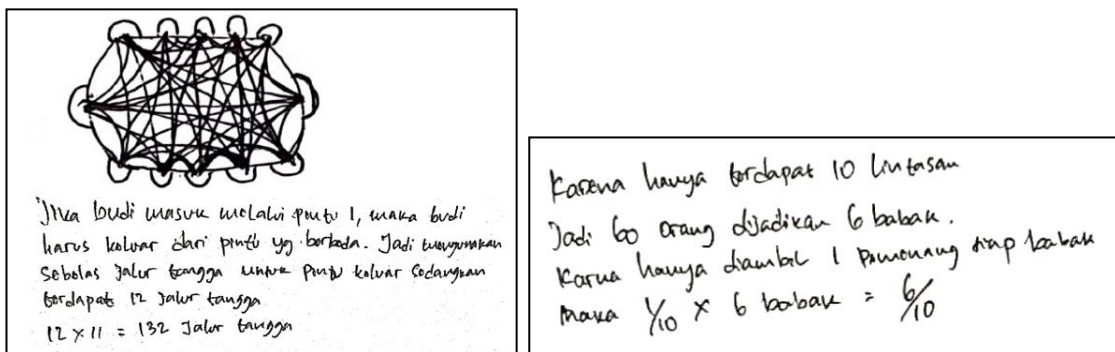 Jika budi masuk melalui pintu 1, maka budi
harus keluar dari pintu yg berbeda. Jadi menggunakan
sebelas jalur tangga untuk pintu keluar sedangkan
terdapat 12 jalur tangga
12 x 11 = 132 jalur tangga
Karena hanya terdapat 10 lintasan
Jadi 60 orang dijadikan 6 babak.
Karna hanya diambil 1 pemenang tiap babak
maka 1/10 x 6 babak = 6/10